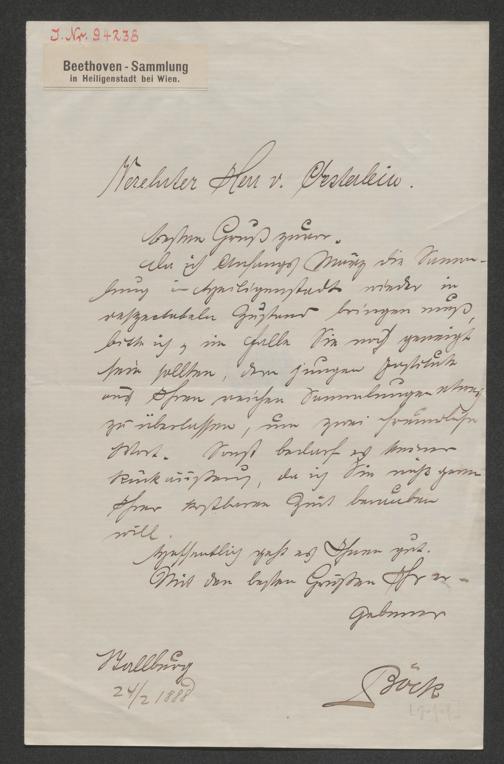 J. Nr. 94238
Beethoven - Sammlung
in Heiligenstadt bei Wien.
Verehrter Herr v. Oesterlein.
besten Gruß zuvor.
Da ich Anfangs März die Samm-
lung in Heiligenstadt wieder in
respectabeln Zustand bringen muß,
bitte ich, im Falle Sie noch geneigt
sein sollten, dem jungen Institute
aus Ihren reichen Sammlungen etwas
zu überlassen, um zwei freundliche
Wort. Sonst bedarf es keiner
Rückäußerung, da ich Sie nicht gerne
Ihrer kostbaren Zeit berauben
will.
Hoffentlich geht es Ihnen gut.
Mit den besten Grüßen Ihr er-
gebener
Stallburg
24/2 1888
Böck